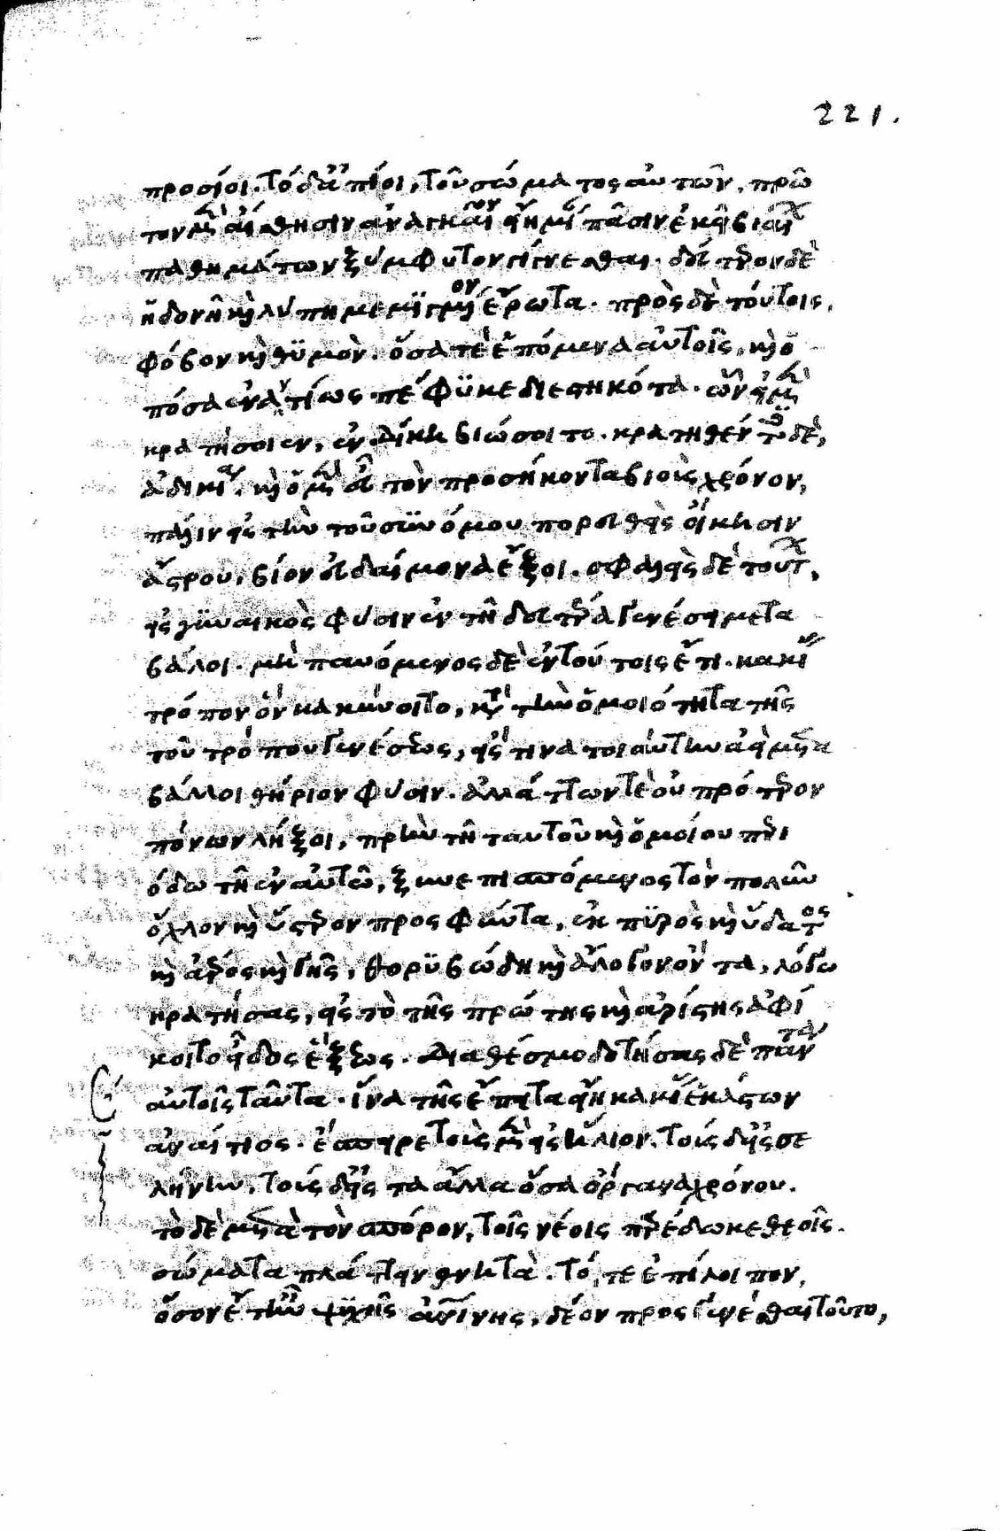 221.
προσίοι. τὸ δ' ἀπίοι, τοῦ σώματος αὐτῶν, πρῶ
τον μὲν αἴσθησιν ἀναγκαῖον εἴη μίαν πᾶσιν ἐκ βιαίων
παθημάτων ξύμφυτον γίγνεσθαι. δεύτερον δὲ
ἡδονῇ καὶ λύπῃ μεμϊγμένον ἔρωτα. πρὸς δὲ τούτοις,
φόβον καὶ θϋμὸν. ὅσα τε ἑπόμενα αὐτοῖς, καὶ ὁ
πόσα ἐναντίως πέφϋκε διεστηκότα. ὧν εἰ μὲν
κρατήσοιεν, ἐν δίκῃ βιώσοιντο. κρατηθέντες δὲ,
ἀδικίᾳ. καὶ ὁ μὲν εὖ τὸν προσήκοντα βιοὺς χρόνον,
πάλιν εἰς τὴν τοῦ συννόμου πορευθεὶς οἴκησιν
ἄστρου, βίον εὐδαίμονα ἕξοι. σφαλεὶς δὲ τούτων,
εἰς γυναικὸς φύσιν ἐν τῇ δευτέρᾳ γενέσει μετα
βάλοι. μὴ παυόμενος δὲ ἐν τούτοις ἔτι κακίας
τρόπον ὃν κακύνοιτο, κατὰ τὴν ὁμοιότητα τῆς
τοῦ τρόπου γενέσεως, εἴς τινα τοιαύτην ἀεὶ μετα
βάλλοι θήριον φύσιν. ἀλλάττων τὲ οὐ πρότερον
πόνων λήξοι, πρὶν τῇ ταυτοῦ καὶ ὁμοίου περι
όδω τῇ ἐν αὐτῶ, ξυνεπισπόμενος τὸν πολὺν
ὄχλον καὶ ὕστερον προσφύντα, ἐκ πϋρὸς καὶ ὕδατος
καὶ ἀέρος καὶ γῆς, θορϋβώδη καὶ ἄλογον ὄντα, λόγω
κρατήσας, εἰς τὸ τῆς πρώτης καὶ ἀρίστης ἀφί
κοιτο εἶδος ἕξεως. διαθεσμοδοτήσας δὲ πάντα
αὐτοῖς ταῦτα. ἵνα τῆς ἔπειτα εἴη κακίας ἑκάστων
ἀναίτιος. ἔσπειρε τοὺς μὲν εἰς ἥλιον. τοὺς δ' εἰς σε
λήνην, τοὺς δ' εἰς τὰ ἄλλα ὅσα ὄργανα χρόνου.
τὸ δὲ μετὰ τὸν σπόρον, τοῖς νέοις παρέδωκε θεοῖς.
σώματα πλάττειν θνητὰ. τό, τε ἐπίλοιπον,
ὅσον ἔτι ἦν ψϋχῆς ἀνθρωπίνης, δέον προσγενέσθαι τοῦτο,